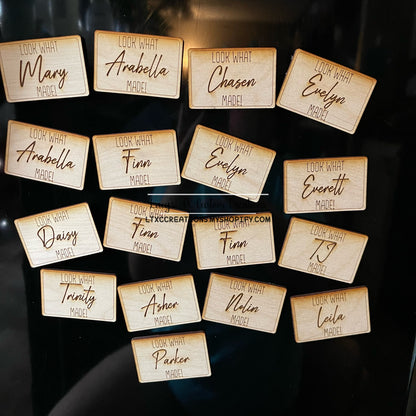 LOOK WHAT
Mary
MADE!
LOOK WHAT
Arabella
MADE!
LOOK WHAT
Chasen
MADE!
LOOK WHAT
Evelyn
MADE!
LOOK WHAT
Arabella
MADE!
LOOK WHAT
Finn
MADE!
LOOK WHAT
Evelyn
MADE!
LOOK WHAT
Everett
MADE!
LTXCCREATIONS.MYSHOPIFY.COM
LOOK WHAT
Daisy
MADE!
LOOK WHAT
Finn
MADE!
LOOK WHAT
Finn
MADE!
LOOK WHAT
TJ
MADE!
LOOK WHAT
Trinity
MADE!
LOOK WHAT
Asher
MADE!
LOOK WHAT
Nolin
MADE!
LOOK WHAT
Leila
MADE!
LOOK WHAT
Parker
MADE!